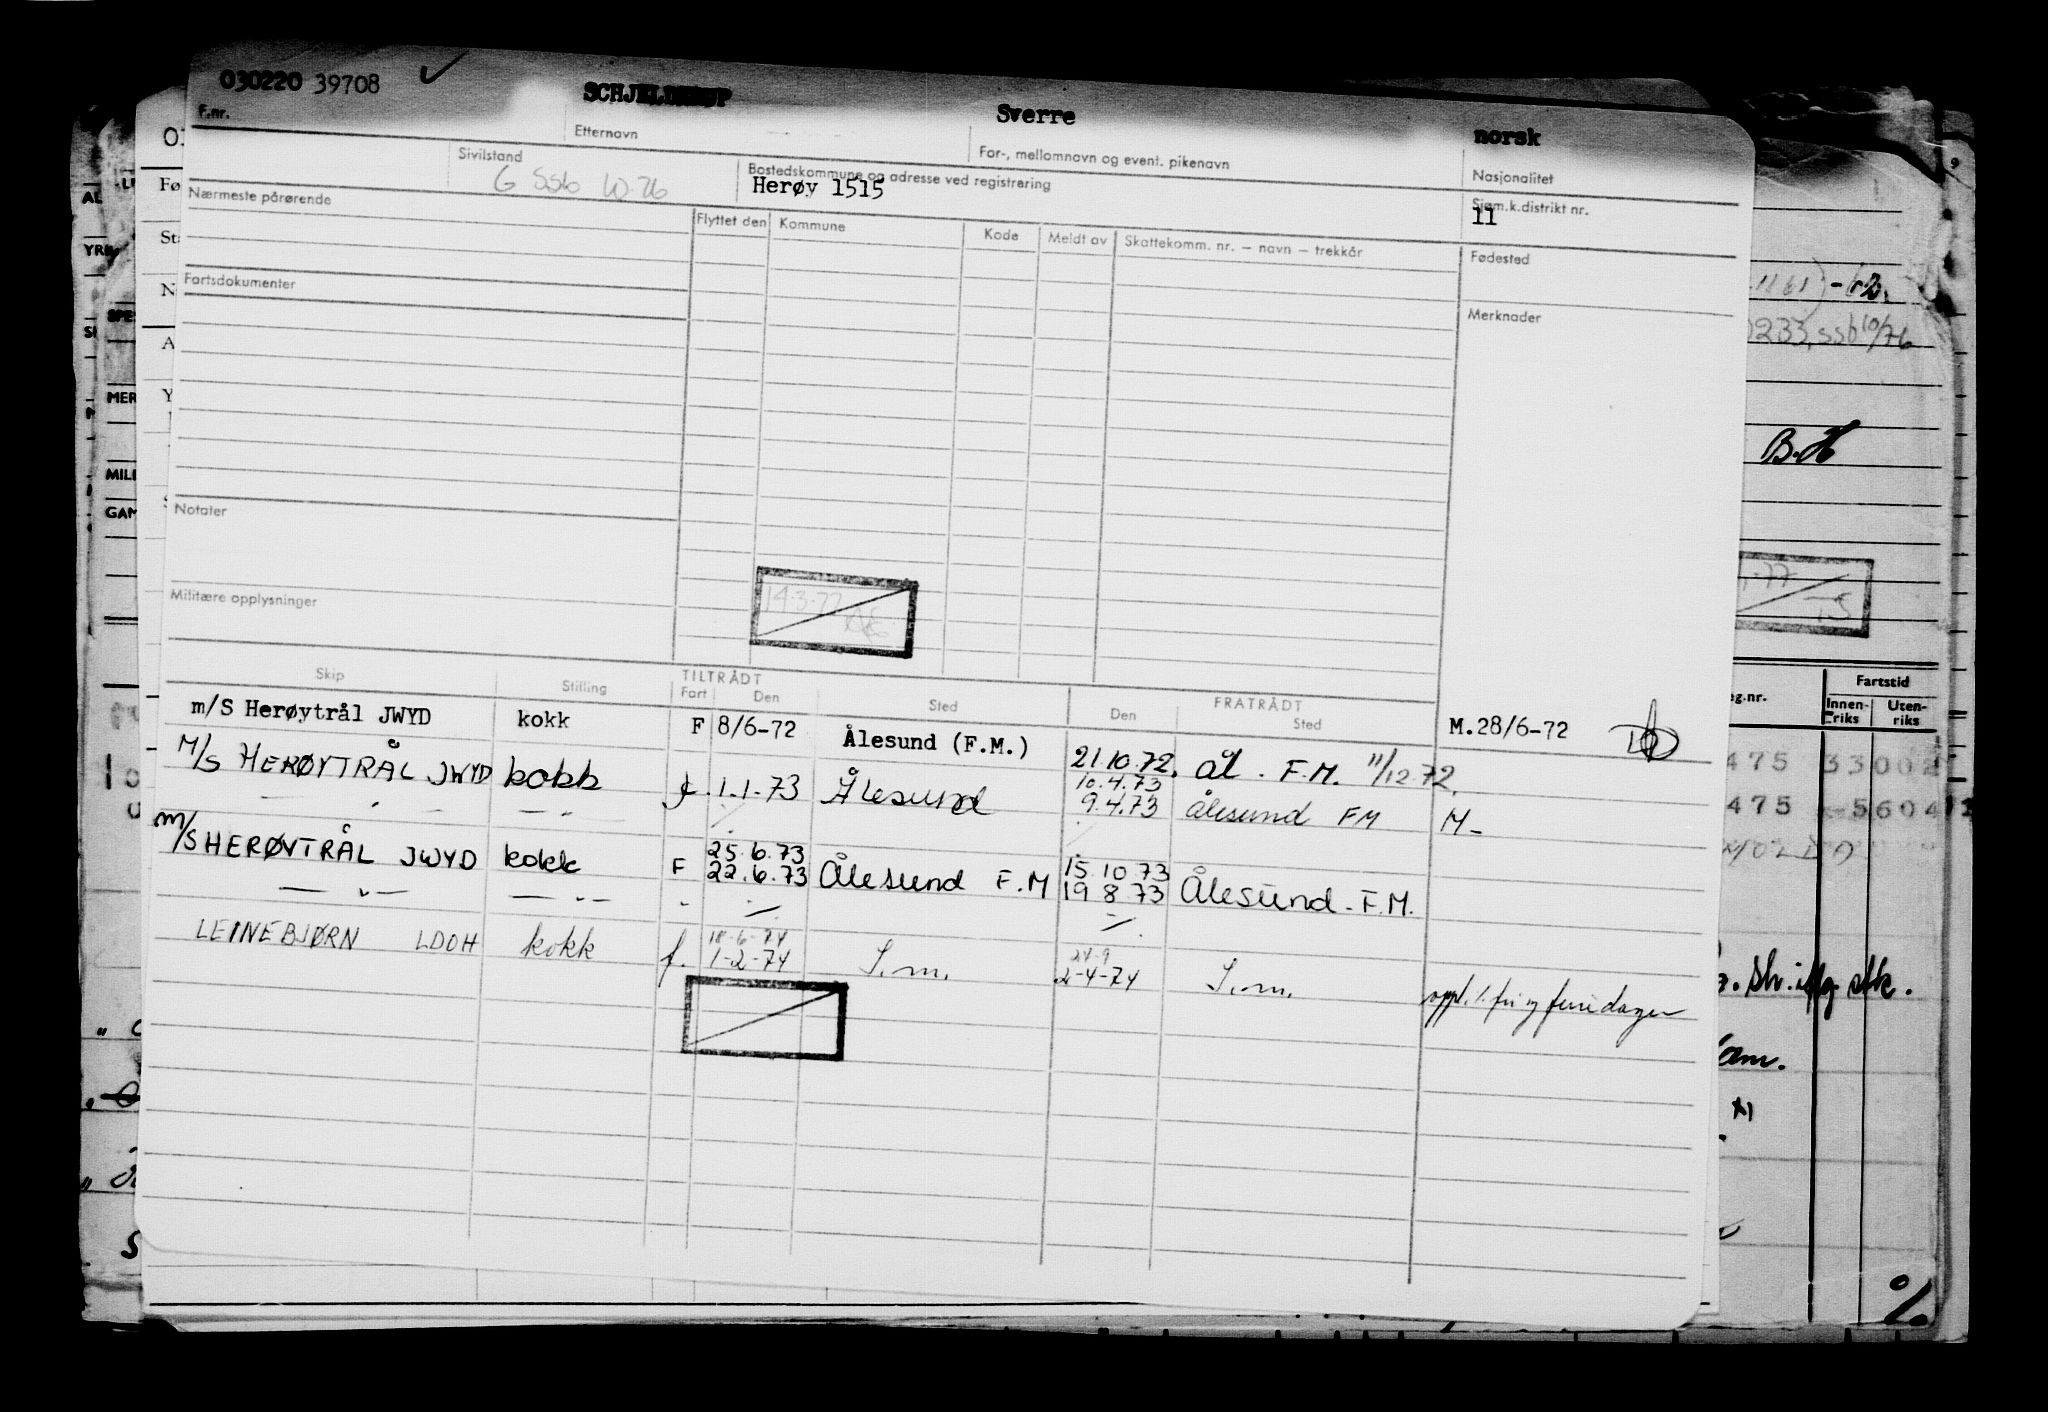 030220 39708
SCHJELDERUP
Sverre
norsk
F.nr.
Etternavn
For-, mellomnavn og event. pikenavn
Nasjonalitet
Sivilstand
G SSb 10.76
Bostedskommune og adresse ved registrering
Herøy 1515
Sjøm.k.distrikt nr.
11
Nærmeste pårørende
Flyttet den
Kommune
Kode
Meldt av
Skattekomm. nr. – navn – trekkår
Fødested
Fartsdokumenter
Merknader
Notater
14.3.77
Militære opplysninger
Skip
Stilling
TILTRÅDT
Fart
Den
Sted
FRATRÅDT
Den
Sted
m/S Herøytrål JWYD kokk F 8/6-72 Ålesund (F.M.) 21.10.72. Ål. F.M. 11/12.72. M.28/6-72
M/S HERØYTRÅL JWYD kokk f. 1.1.73 Ålesund 10.4.73
9.4.73 Ålesund FM M-
— " — — " —
m/S HERØYTRÅL JWYD kokk F 25.6.73
22.6.73 Ålesund F.M 15.10.73
19 8 73 Ålesund. F.M.
— " — — " — -
LEINEBJØRN LDOH kokk f. 18-6-74
1-2-74 S.m. 24-9
2-4-74 S.m. oppl. f. fri og feriedager
AL
YRK
SPES
MER
MILI
GAM
1161)-62.
0233, ssb 10/76
B.H
.77
TS
eg.nr.
Fartstid
Innen-
riks
Uten-
riks
475 33002
475 5604
stk.
%